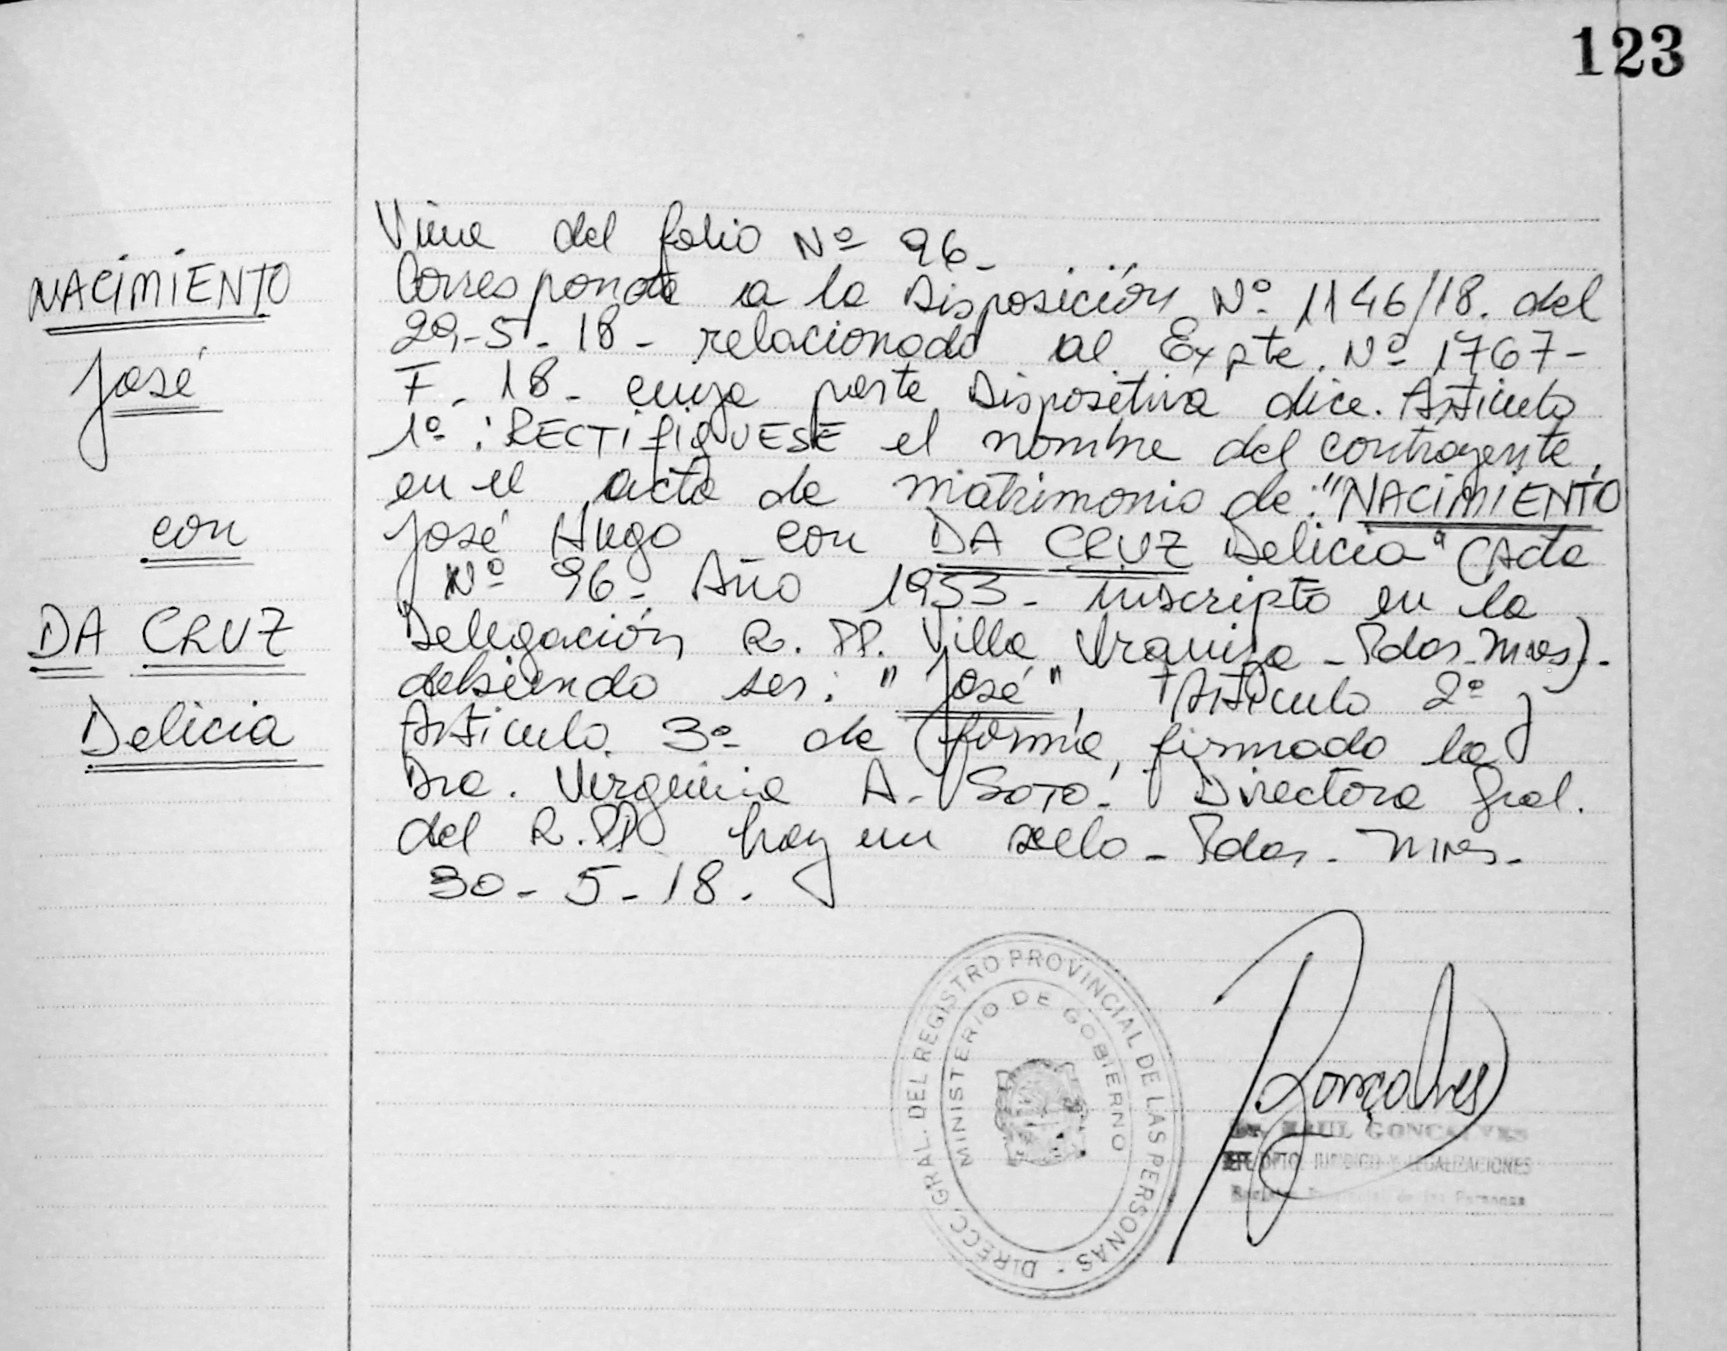 123
NACIMIENTO
José
con
DA CRUZ
Delicia
Viene del folio Nº 96-
Corresponde a la Disposición Nº 1146/18. del
29-5-18- relacionado al Expte. Nº 1767-
F-18- cuya parte Dispositiva dice. Artículo
1º: RECTIFIQUESE el nombre del contrayente,
en el acta de matrimonio de: "NACIMIENTO
José Hugo con DA CRUZ Delicia" (Acta
Nº 96- Año 1953- inscripto en la
Delegación R. PP. Villa Urquiza - Pdas-Mnes)-
debiendo ser: "José", Artículo 2º y
Artículo 3º de forma, firmado la
Dra. Virginia A. Soto- Directora Gral.
del R.PP hay un sello - Pdas- Mnes-
30-5-18.
DIRECC. GRAL. DEL REGISTRO PROVINCIAL DE LAS PERSONAS -
MINISTERIO DE GOBIERNO
Gonçalves
Dr. RAUL GONCALVES
JEFE DPTO. JURIDICO Y LEGALIZACIONES
Registro Provincial de las Personas